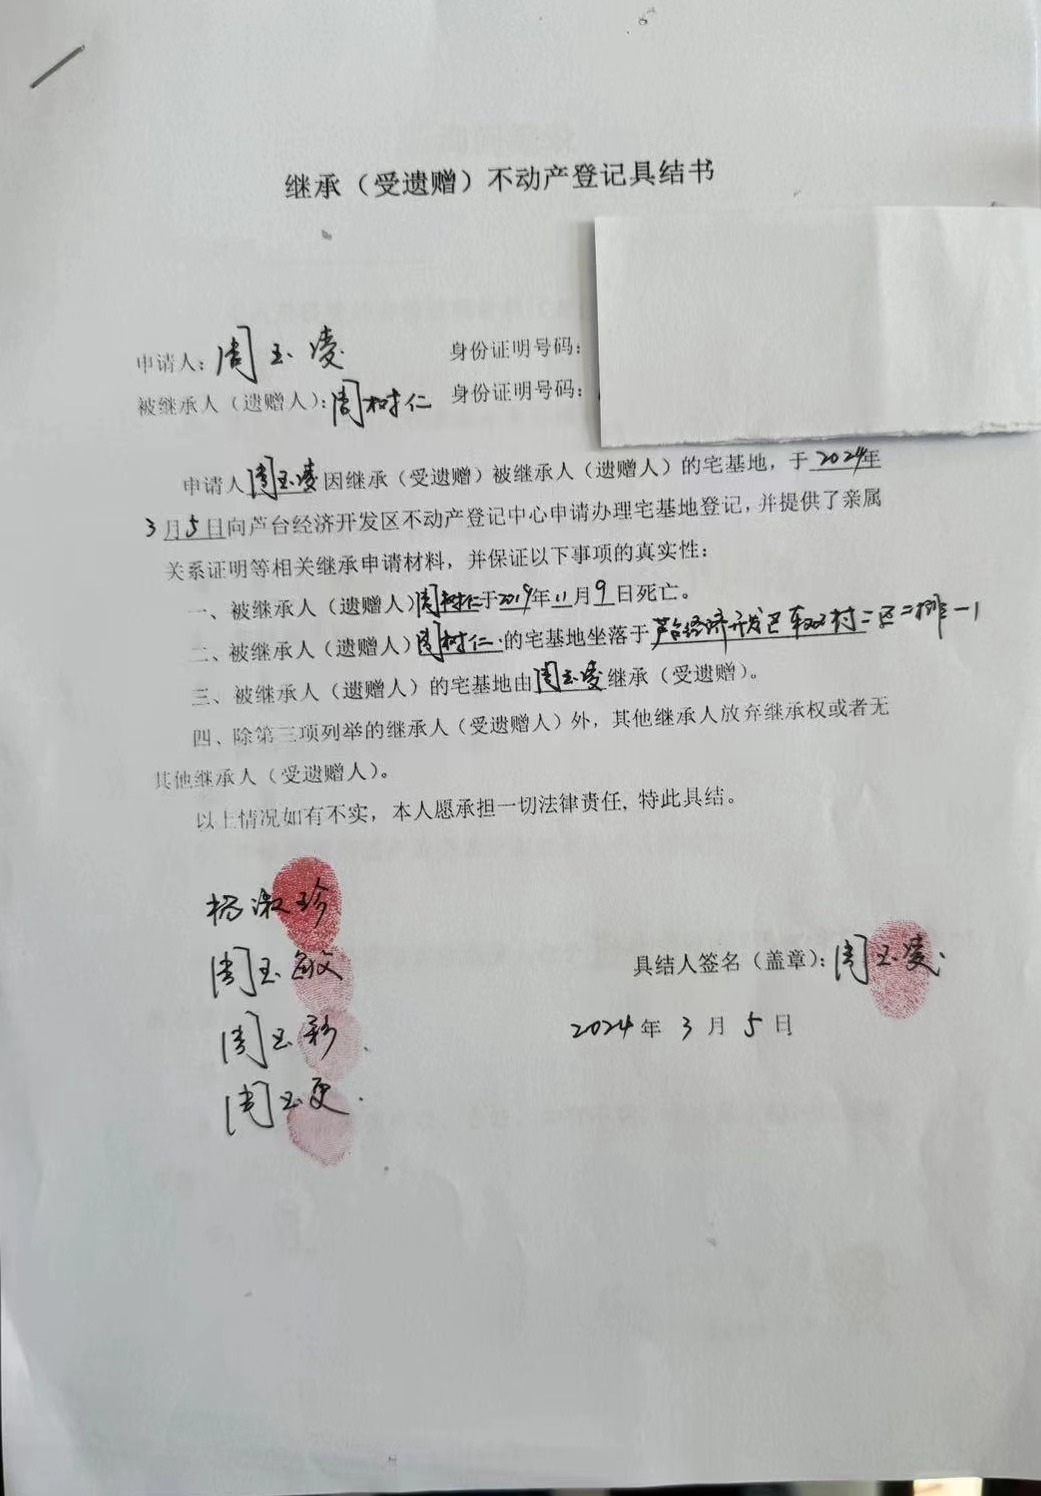 继承（受遗赠）不动产登记具结书
申请人：周玉凌 身份证明号码：
被继承人（遗赠人）：周树仁 身份证明号码：
申请人周玉凌因继承（受遗赠）被继承人（遗赠人）的宅基地，于2024年
3月5日向芦台经济开发区不动产登记中心申请办理宅基地登记，并提供了亲属
关系证明等相关继承申请材料，并保证以下事项的真实性：
一、被继承人（遗赠人）周树仁于2019年11月9日死亡。
二、被继承人（遗赠人）周树仁的宅基地坐落于芦台经济开发区村二区二排-1
三、被继承人（遗赠人）的宅基地由周玉凌继承（受遗赠）。
四、除第三项列举的继承人（受遗赠人）外，其他继承人放弃继承权或者无
其他继承人（受遗赠人）。
以上情况如有不实，本人愿承担一切法律责任，特此具结。
杨淑珍
周玉敏
周玉彩
周玉更
具结人签名（盖章）：周玉凌
2024年3月5日